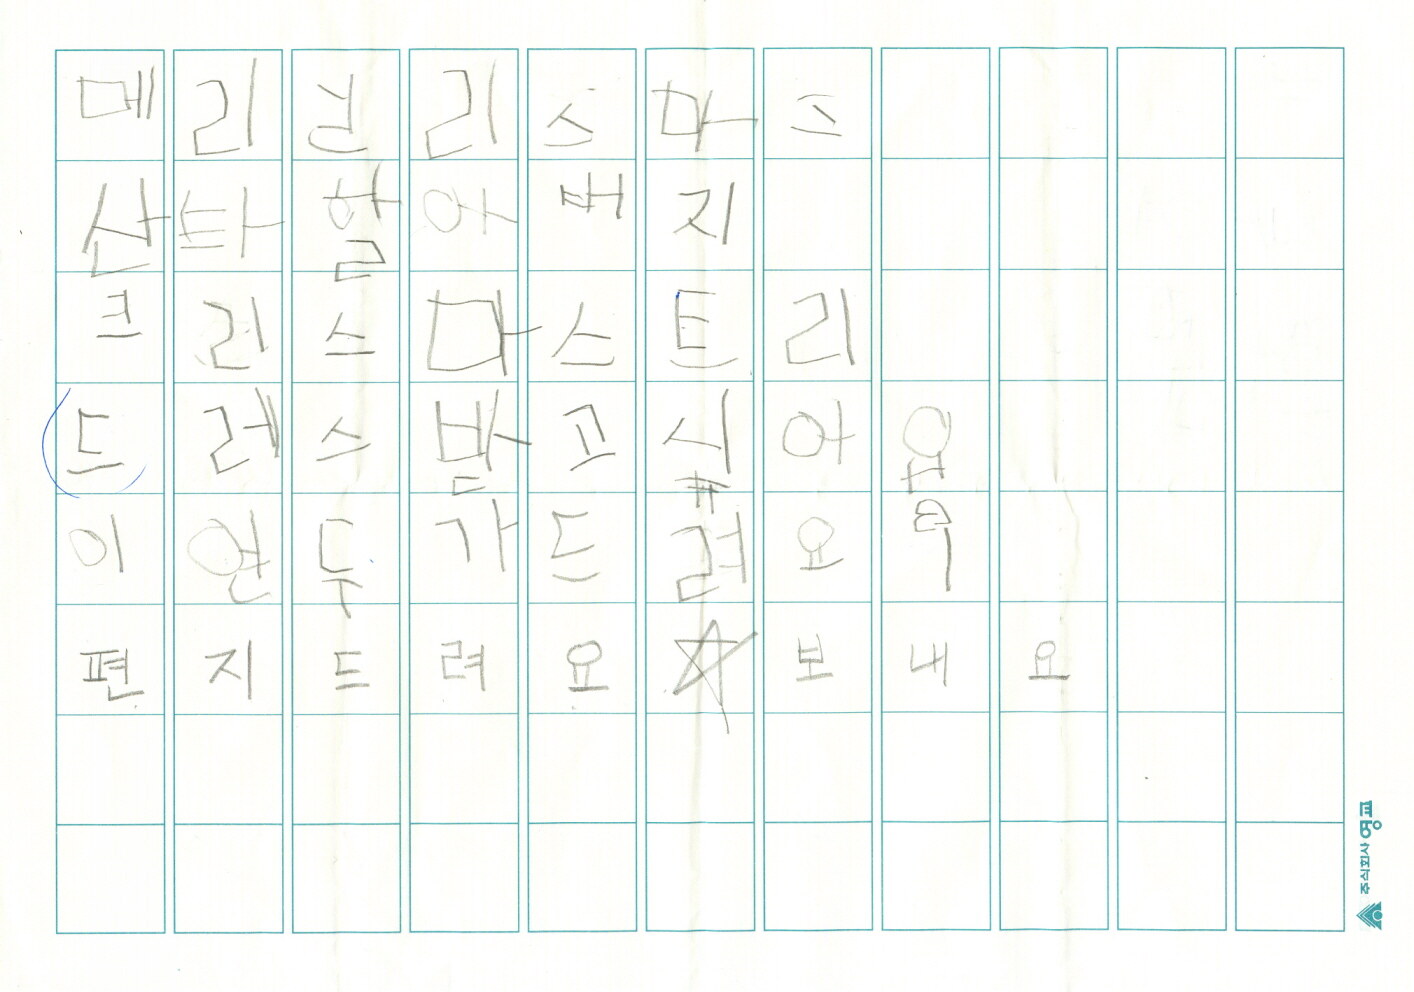 메리크리스마스
산타할아버지
크리스마스트리
드레스받고싶어요
이연두가드려요
편지드려요☆보내요
주식회사 영교